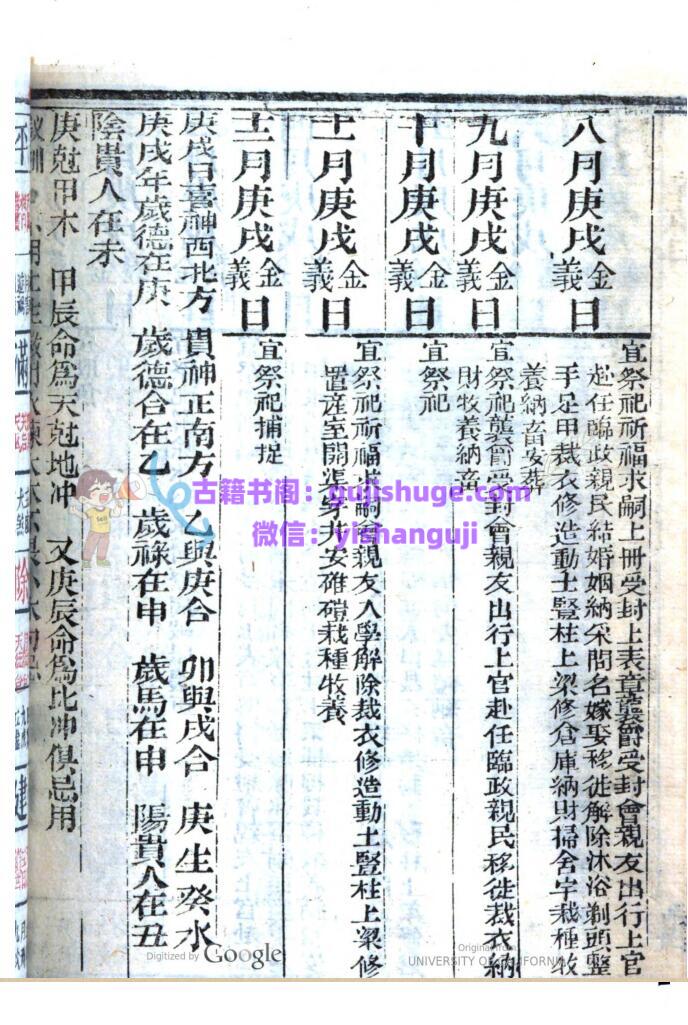 八月庚戌金義日
宜祭祀祈福求嗣上冊受封上表章襲爵受封會親友出行上官
赴任臨政親民結婚姻納采問名嫁娶移徙解除沐浴剃頭整
手足甲裁衣修造動土豎柱上梁修倉庫納財掃舍宇栽種牧
養納畜安葬
九月庚戌金義日
宜祭祀襲爵受封會親友出行上官赴任臨政親民移徙裁衣納
財牧養納畜
十月庚戌金義日
宜祭祀
十一月庚戌金義日
宜祭祀祈福求嗣會親友入學解除裁衣修造動土豎柱上梁修
置產室開張穿井安碓磑栽種牧養
十二月庚戌金義日
宜祭祀捕捉
庚戌日喜神西北方 貴神正南方 乙與庚合 卯與戌合 庚生癸水
庚戌年歲德在庚 歲德合在乙 歲祿在申 歲馬在申 陽貴人在丑
陰貴人在未
庚尅甲木 甲辰命為天尅地冲 又庚辰命為比冲俱忌用
古籍书阁：gujishuge.com
微信：yishanguji
Digitized by Google
Original from
UNIVERSITY OF CALIFORNIA